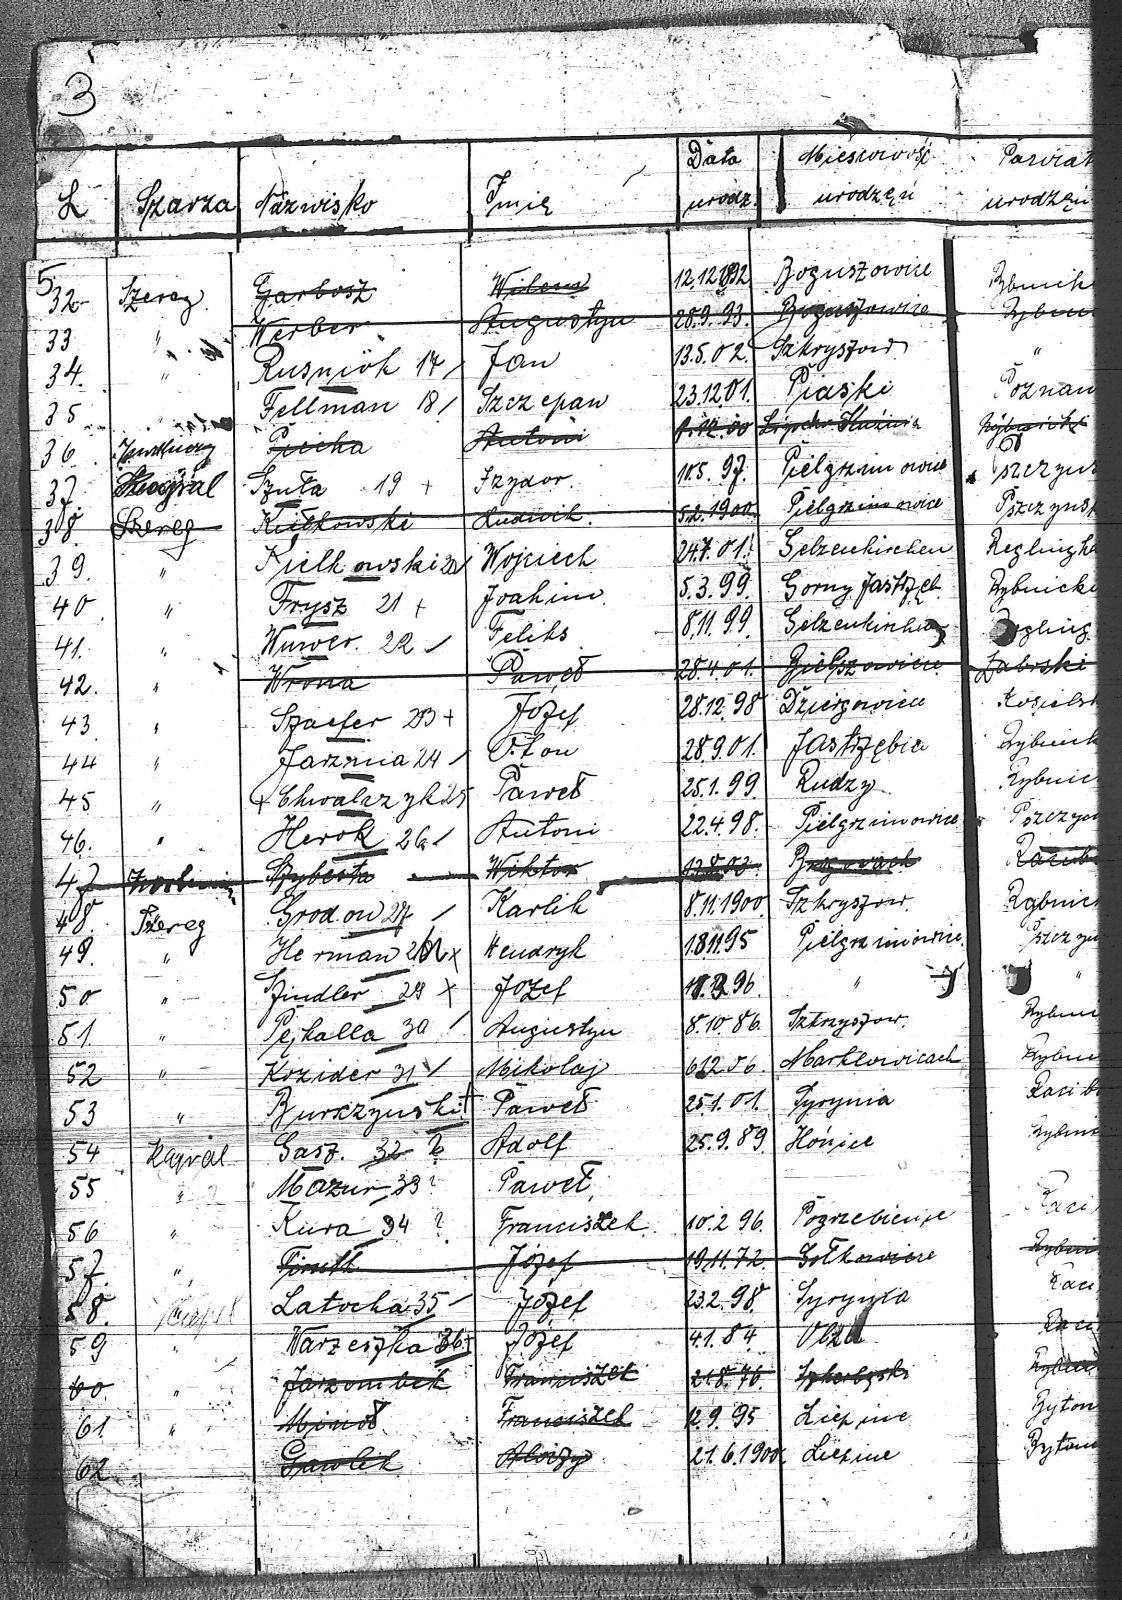 3
L Szarza Nazwisko Imię Data urodz. Miescowość urodzęń Powiat urodzęń
5
32 Szereg. Garbosz Wilem 12.12.892 Boguszowice Rybnick
33 " Werber Augustyn 28.9.93. Boguszowice Rybni
34. " Rusniok 17 / Jan 13.5.02. Szkryszow "
35 " Fellman 18 / Szczepan 23.12.01. Piaski Poznan
36 Piecha Antoni 1.12.00
37 Szuła 19 + Izydor. 10.5.97. Pielgrzimowice Pszczyns
38. Szereg Kiełkowski Ludwik. 5.2.1900 Pielgrzimowice Pszczyns
39. " Kielkowski 20/ Wojciech 24.7.01. Gelzenkirchen Reglingha
40 " Frysz 21 + Joahim 5.3.99. Gorny Jastrzęb. Rybnicki
41. " Wuwer. 22 / Feliks 8.11.99. Gelzenkirchen
42. " Wrona Paweł 28.4.01. Bielszowice Zabrski
43 " Szaefer 23 + Józef 28.12.98 Dziergowice Kozielsk
44 " Jarznia 24 / Oton 28.9.01. Jastrzębia Rybnick
45 " Chwalczyk 25 Paweł 25.1.99. Rudzy Rybnic
46. " Herok 26 / Antoni 22.4.98. Pielgrzimowice Pszczyn
47 Szybesta Wiktor Racib
48. Szereg Grodon 27 / Karlik 8.11.1900. Szkryszow. Rybnic
49. " Herman 28 x Hendryk 18.11.95 Pielgrzimowice. Pszczyn
50 " Szindler 29 x Józef "  "
51. " Pejkalla 30 / Augustyn 8.10.86. Sztrzyszow. Rybni
52 " Kozider 31 / Mikołaj Marklowicach Rybni
53 " Burczynski + Paweł 25.1.01. Syrynia Racib
54 Kapral Gasz. 32 ? Adolf 25.9.89. Rybni
55 " Mazur 33 ? Paweł.
56 " Kura 34 ? Franciszek. 10.2.96. Pogrzebienie Raci
57. " Józef 19.11.72. Gołkowice Rybni
58. Latocha 35 / Józef 23.2.98. Syrynia Raci
59 " Warzeszka 36 + Józef 4.1.84. Olza Raci
60. " Jarzombek Franciszek 21.8.76.
61. " Minoł. Franciszek 12.9.95 Liepine Byton
62 Gawlik Alojzy 21.6.1900. Liepine Bytom